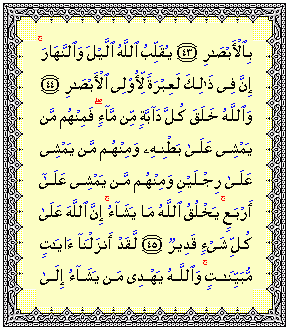 بِٱلْأَبْصَـٰرِ ﴿٤٣﴾ يُقَلِّبُ ٱللَّهُ ٱلَّيْلَ وَٱلنَّهَارَ ۚ
إِنَّ فِى ذَٰلِكَ لَعِبْرَةً لِّأُو۟لِى ٱلْأَبْصَـٰرِ ﴿٤٤﴾
وَٱللَّهُ خَلَقَ كُلَّ دَآبَّةٍ مِّن مَّآءٍ ۖ فَمِنْهُم مَّن
يَمْشِى عَلَىٰ بَطْنِهِۦ وَمِنْهُم مَّن يَمْشِى
عَلَىٰ رِجْلَيْنِ وَمِنْهُم مَّن يَمْشِى عَلَىٰٓ
أَرْبَعٍ ۚ يَخْلُقُ ٱللَّهُ مَا يَشَآءُ ۚ إِنَّ ٱللَّهَ عَلَىٰ
كُلِّ شَىْءٍ قَدِيرٌ ﴿٤٥﴾ لَّقَدْ أَنزَلْنَآ ءَايَـٰتٍ
مُّبَيِّنَـٰتٍ ۚ وَٱللَّهُ يَهْدِى مَن يَشَآءُ إِلَىٰ